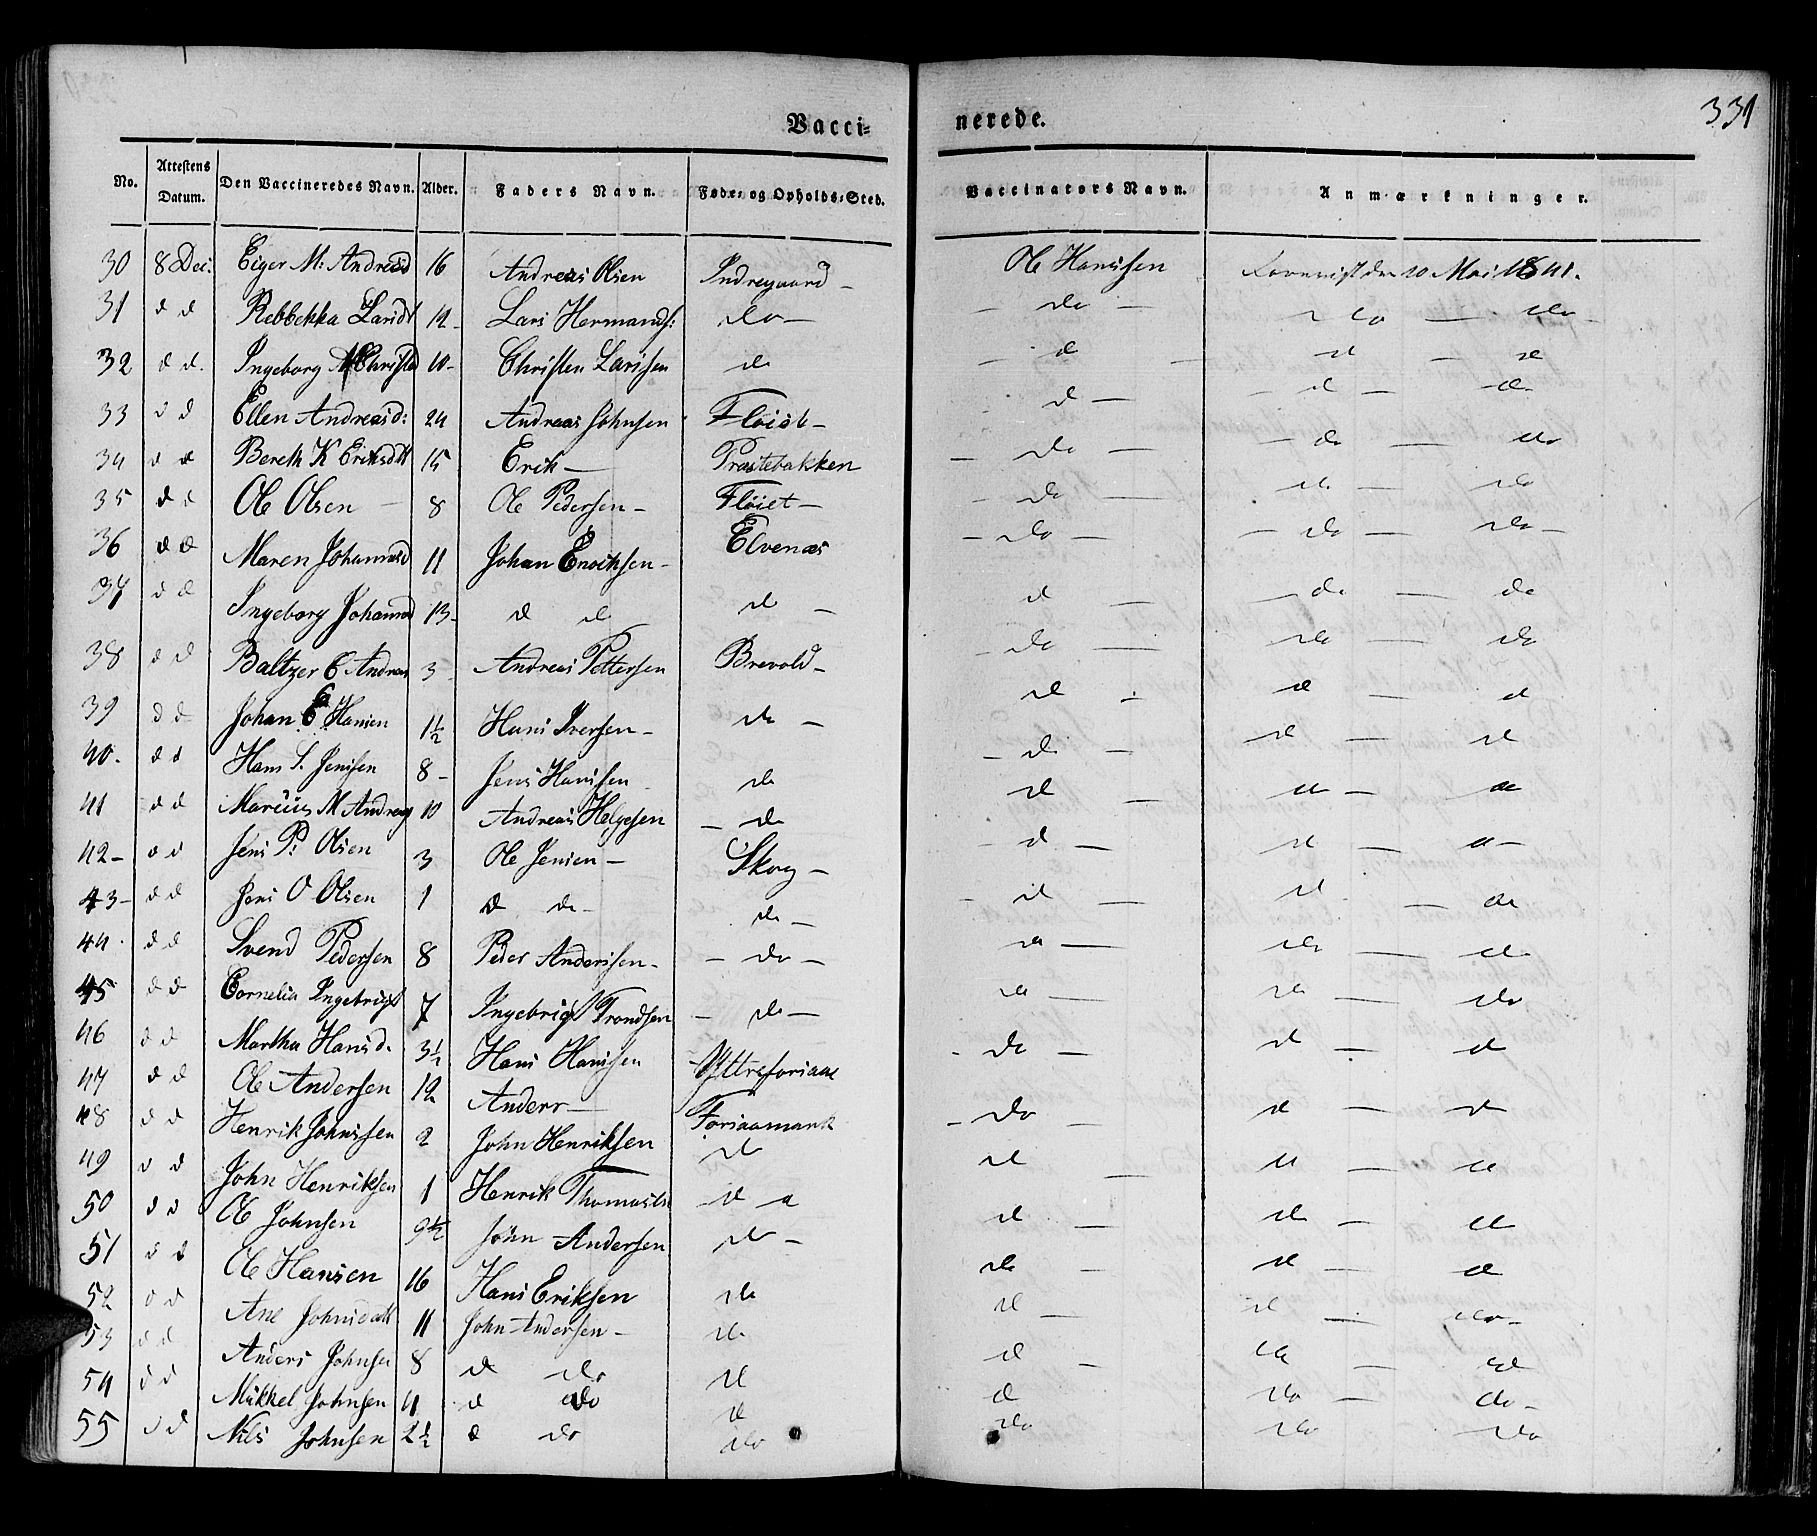 331
Vacci- nerede.
No. Attestens Datum. Den Vaccineredes Navn. Alder. Faders Navn. Føde- og Opholds-Sted. Vaccinators Navn. Anmærkninger.
30 8 Dec: Eiger M: Andreasd 16 Andreas Olsen Indregaard – Ole Hanssen 10 Mai 1841.
31 d d Rebbekka Larsdt 12 – Lars Hermands: do – – do – do – do –
32 d d. Ingeborg M Christd 10 – Christen Larssen do – d – d – d
33 d d Ellen Andreasd: 24 Andreas Johnsen Fløiet – d – – d – d.
34 d d Bereth K Eriksdtt 15 Erik — Præstebakken – do – – do – do
35 d d Ole Olsen – 8 Ole Pedersen – Fløiet – – do – d – do
36 d d Maren Johannsd 11 Johan Enochsen – Elvenæs – do – – do – do –
37 d d Ingeborg Johannsd 13 – d do do – d – – do – do
38 d d Baltzer C Andreas 3 – Andreas Pettersen Brevold – – do – do – do
39 d d Johan E Hansen 1½ Hans Iversen – do – d – d – d
40. d d Hans S. Jenssen 8 – Jens Hanssen do – d. – d – d
41 d d Marcus M Andreas 10 Andreas Helgesen – do d – d – do
42 – d d Jens P: Olsen 3 Ole Jensen – Skog – – d – d – d –
43 – d d Jens O Olsen 1 d do – do – – d – d – do
44. d d Svend Pedersen 8 Peder Anderssen – – do – d – do – d
45 d d Cornelia Ingebrigt 7 Ingebrigt Trondsen – do – d – do – do
46 d d Martha Hansd. 3½ Hans Hanssen – Yttreforiaae – do – d – d
47 d d Ole Andersen 12 Anders — Foriaamark – do – d – d
48 d d Henrik Johnssen 2 John Henriksen do d – d – d
49 d d John Henriksen 1 Henrik Thomassen d d d – do – d
50 d d Ole Johnsen 9½ John Andersen do – do – d – d
51 d d Ole Hansen 16 Hans Eriksen do d – d – do –
52 d d Ane Johnsdatt 11 John Andersen – do d – do – d
53 d d Anders Johnsen 8 d do d d – do – do –
54 d d Mikkel Johnsen 4 d do d do do do
55 d d Nils Johnsen 2½ d do do